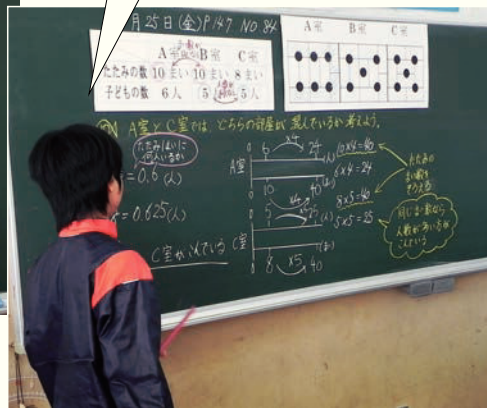 月25日(金)P147 NO.84
A室 B室 C室
たたみの数 10まい 10まい 8まい
子どもの数 6人 5人 5人
A室 B室 C室
A室とC室では、どちらの部屋が混んでいるか考えよう。
たたみ1まいに
何人いるか
= 0.6(人)
= 0.625(人)
C室がこんでいる
A室
0 6 ×4 24 (人)
0 10 40 (まい)
C室
0 5 ×5 25 (人)
0 8 ×5 40 (まい)
10×4=40
6×4=24
8×5=40
5×5=25
たたみの
まい数を
そろえる
同じまい数なら
人数が多いほうが
こんでいる